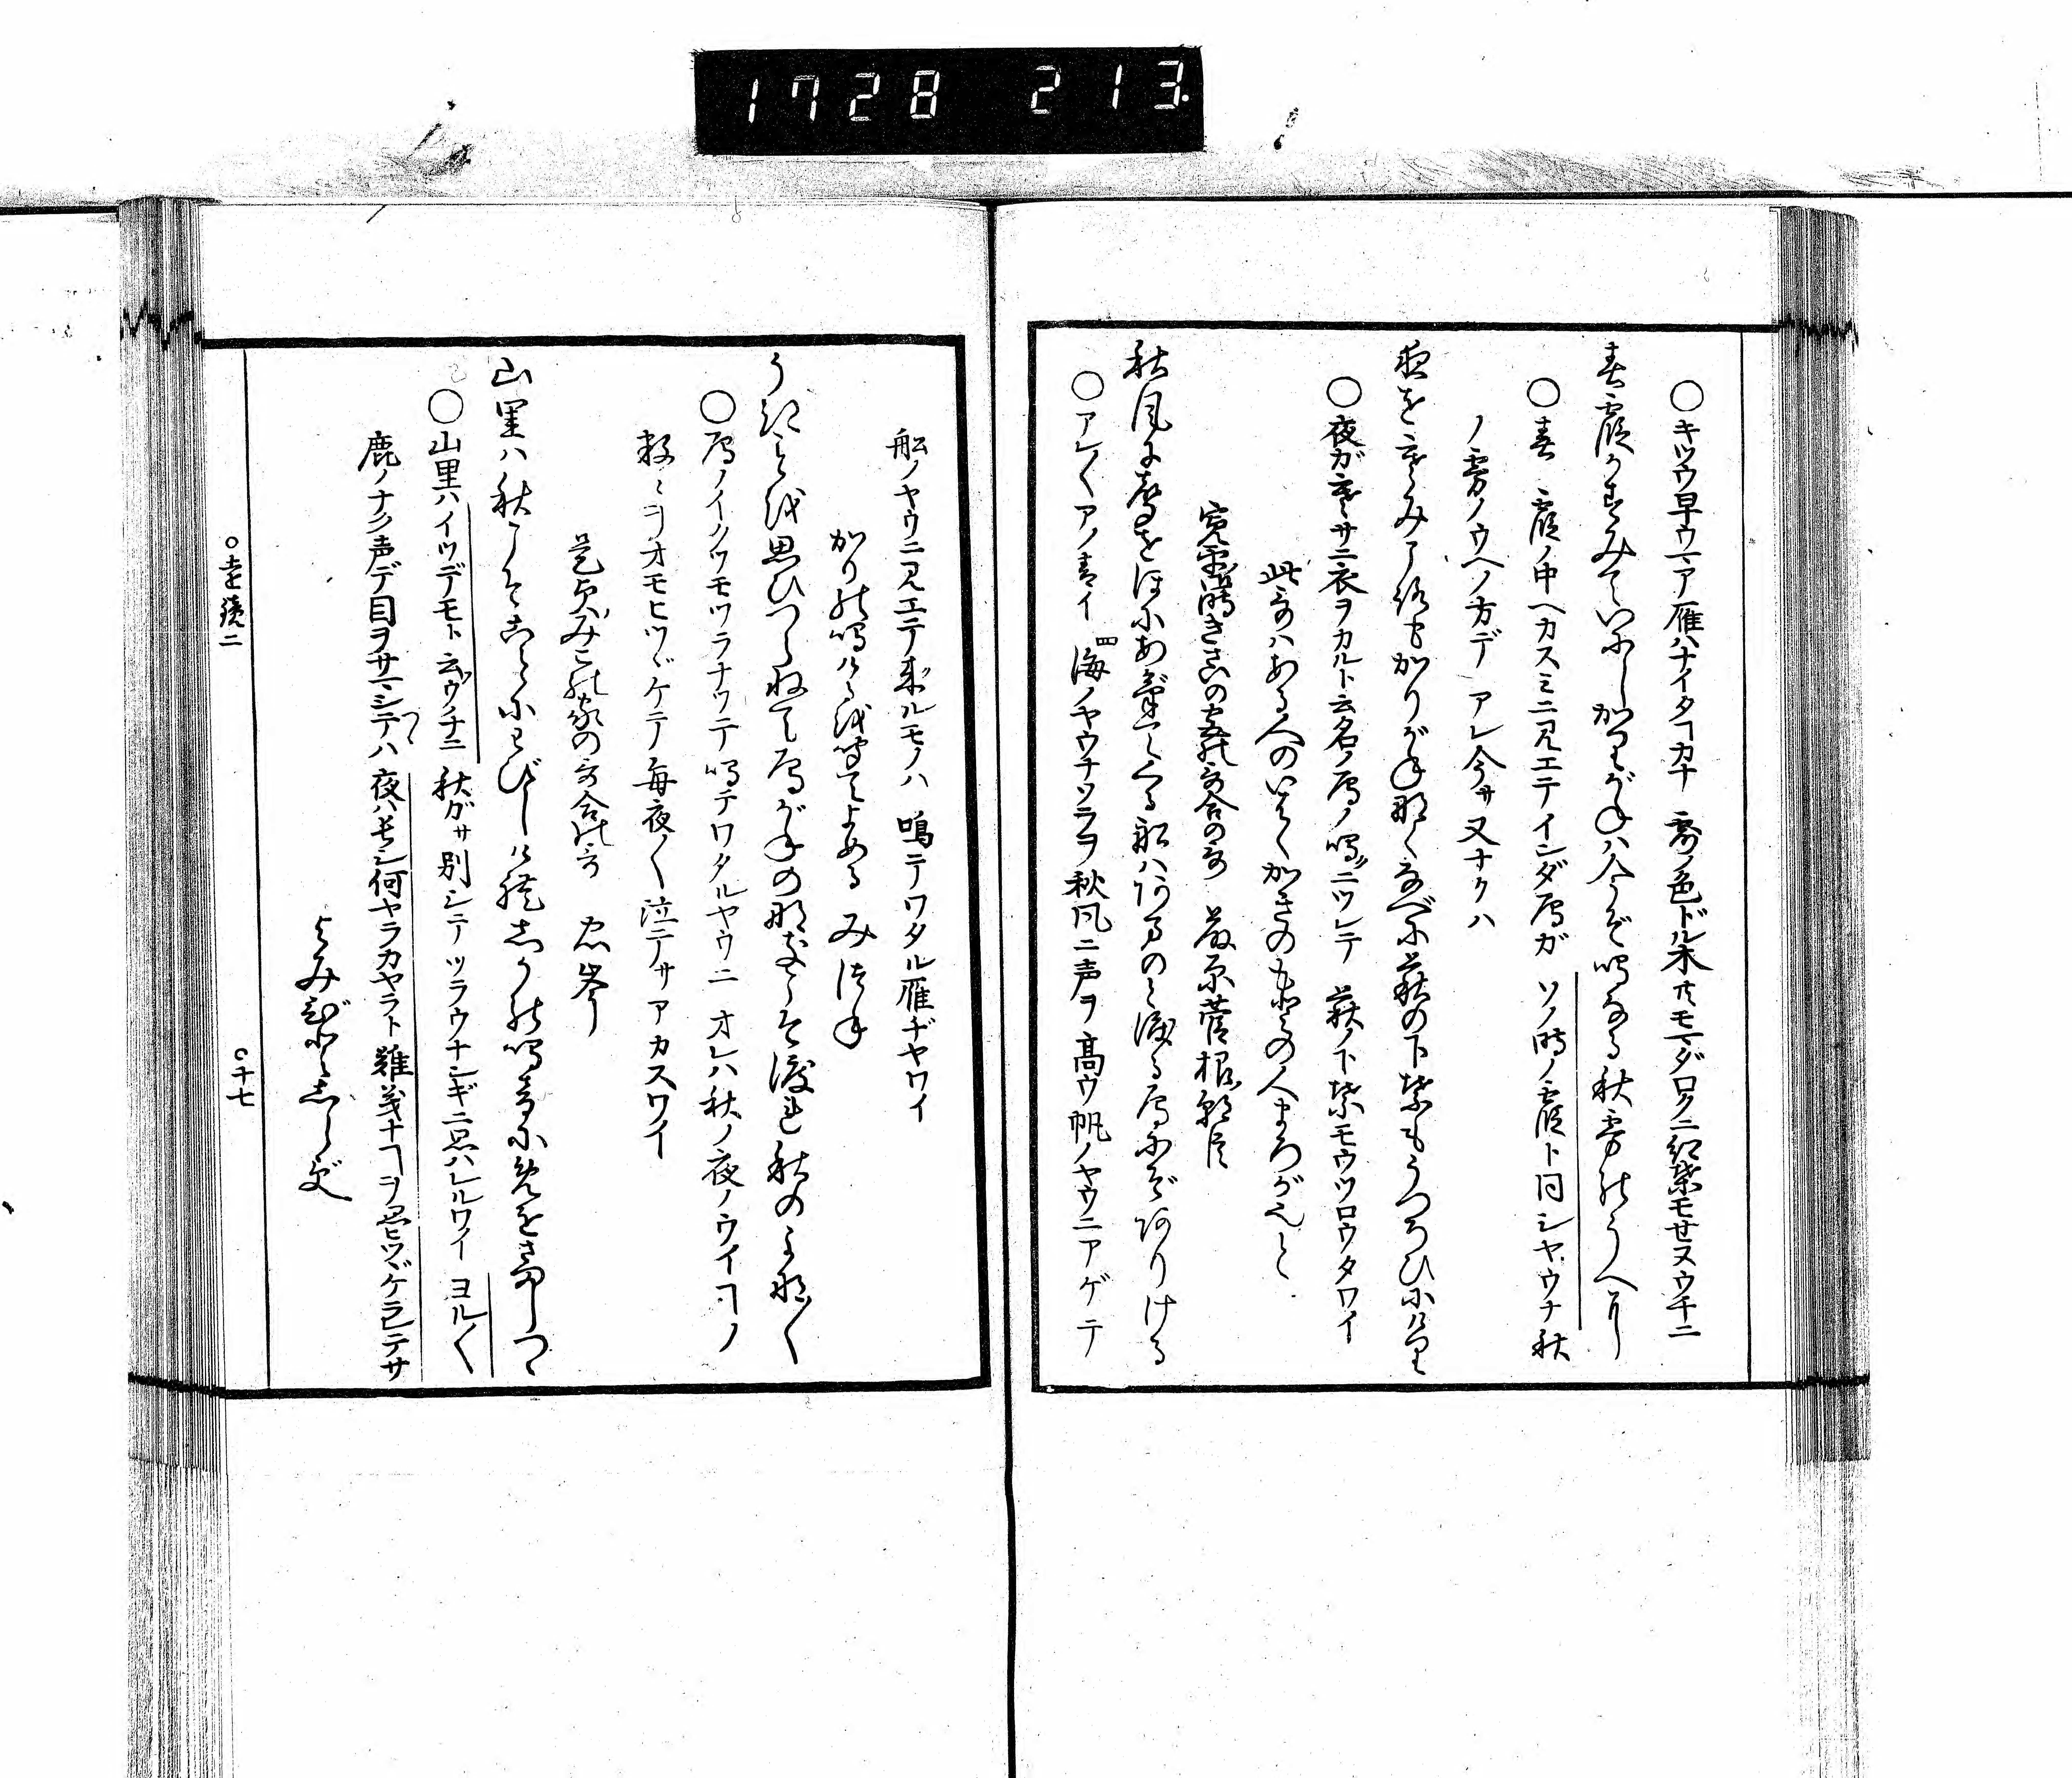 1728 213
○キツウ早ウマア雁ハナイタヿカナ 露ノ色ドル木𪜈モマダロクニ紅葉モセヌウチニ
春霞かすみていにしかりがねは今ぞ鳴なる秋霧のうへに
○春 霞ノ中ヘカスミニ見エテインダ雁ガ ソノ時ノ霞ト同シヤウナ秋
ノ霧ノウヘノ方デ アレ今サ又ナクハ
夜を寒み衣かりがね鳴くなべに萩の下葉もうつろひにけり
○夜ガ寒サニ衣ヲカルト云名ノ雁ノ鳴ニツレテ 萩ノ下葉モウツロウタワイ
此哥ハある人のいはくかきのもとの人まろが也と
寛平御時きさいの宮の哥合の哥 藤原菅根朝臣
秋風に声をほにあげてくる船はあまのと渡る雁にぞありける
○アレ〱アノ青イ 海ノヤウナソラヲ秋風ニ声ヲ高ウ帆ノヤウニアゲテ
船ノヤウニ見エテ来ルモノハ 鳴テワタル雁ヂヤワイ
かりの鳴けるを聞てよめる みつね
うきことを思ひつらねて雁がねの鳴こそ渡れ秋のよな〱
○雁ノイクツモツラナツテ鳴テワタルヤウニ オレハ秋ノ夜ノウイヿノ
数々ヲオモヒツヾケテ毎夜〱泣テサアカスワイ
是貞みこの家の哥合の哥 忠岑
山里は秋こそことにわびしけれしかの鳴音にめをさましつゝ
○山里ハイツデモト云ウチニ 秋ガサ別シテツラウナンギニ思ハレルワイ ヨル〱
鹿ノナク声デ目ヲサマシテハ 夜ハ長シ何ヤラカヤラト 難義ナヿヲ思ヒツヾケラレテサ
よみびとしらず
○遠鏡二
○十七